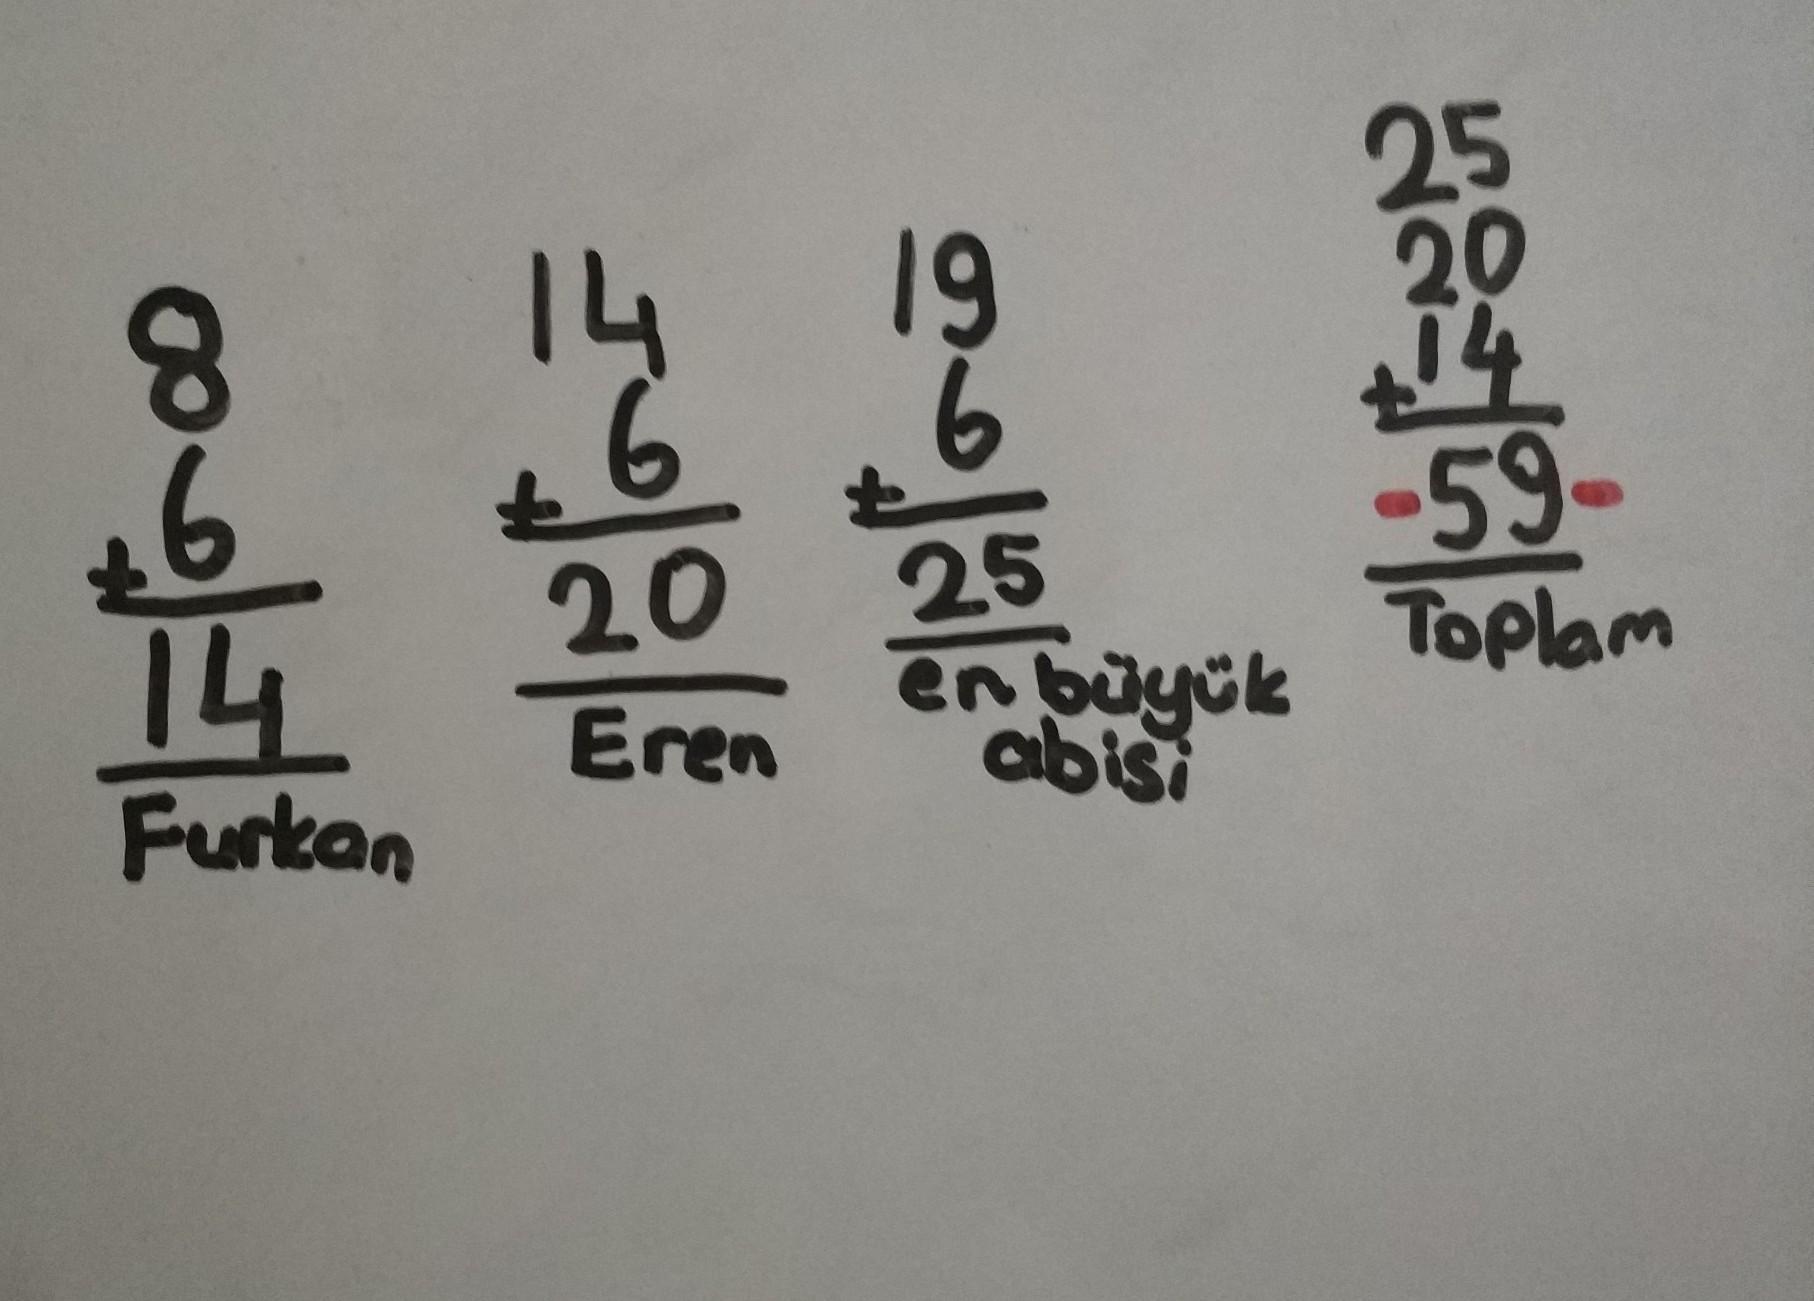 8
6
+
14
Furkan
14
6
+
20
Eren
19
6
+
25
en büyük
abisi
25
20
+14
-59-
Toplam